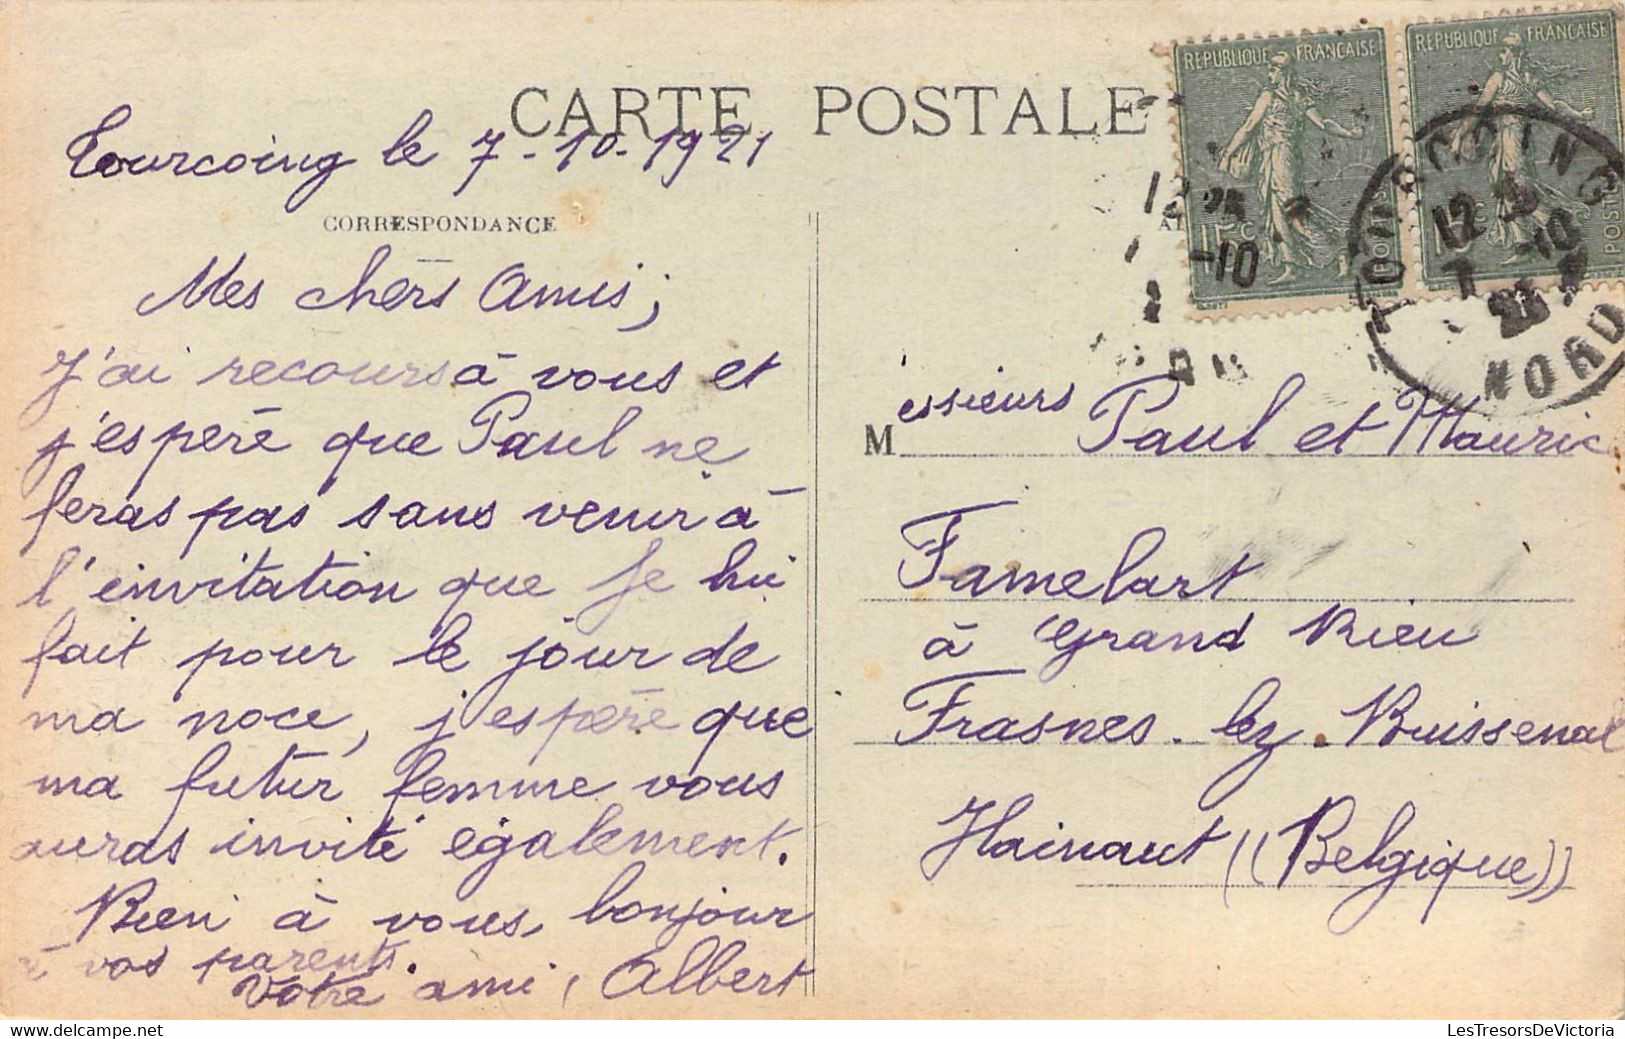 CARTE POSTALE
Tourcoing le 7-10-1921
CORRESPONDANCE
Mes chers Amis,
J'ai recours à vous et
j'espère que Paul ne
feras pas sans venir à
l'invitation que je lui
fait pour le jour de
ma noce, j'espère que
ma futur femme vous
auras invité également.
Bien à vous, bonjour
à vos parents.
Votre ami, Albert
REPUBLIQUE FRANCAISE
REPUBLIQUE FRANCAISE
15c POSTES
15c POSTES
12
-10
TOURCOING
12
7 -10
NORD
Messieurs Paul et Mauric
Famelart
à Grand Rieu
Frasnes-lez-Buissenal
Hainaut ((Belgique))
LesTresorsDeVictoria